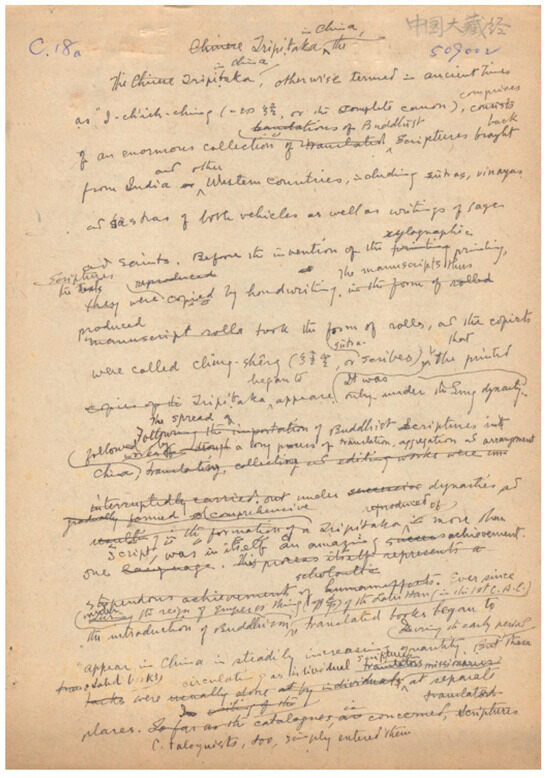 in China,
中国大藏经
C. 18a
Chinese Tripitaka, the
509002
in China
The Chinese Tripitaka, otherwise termed in ancient times
comprises
as "I-ch'ieh-ching (一切经, or the complete canon), consists
translations of Buddhist
back
of an enormous collection of translated Scriptures brought
and other
from India or Western countries, including sūtras, vinayas
and śāstras of both vehicles as well as writings of sages
xylographic
and saints. Before the invention of the printing printing,
Scriptures
the texts reproduced The manuscripts thus
they were copied by handwriting, in the form of rolled
produced
manuscript rolls took the form of rolls, and the copyists
sūtra-
were called ching-shêng (经生, or scribes) that
the printed
began to It was
copies of the Tripitaka appeared only under the Sung dynasty.
the spread of
Following the importation of Buddhist Scriptures into
followed by a long process of translation, aggregation and arrangement
China, translating, collecting and editing works were un-
interruptedly carried out under successive dynasties and
gradually formed a comprehensive reproduced
in the formation of a Tripitaka in more than
script, was in itself an amazing success achievement.
one language. This process itself represents a
scholastic
stupendous achievement of human efforts. Ever since
during the reign of Emperor Ming of the Later Han (in the 1st C. A.D.)
the introduction of Buddhism translated books began to
During the early period
appear in China in steadily increasing quantity. But these
translated books circulating as individual scriptures translators missionaries
were usually done by individuals at separate
translated
places. So far as the catalogues, is concerned, scriptures
Cataloguists, too, simply entered them